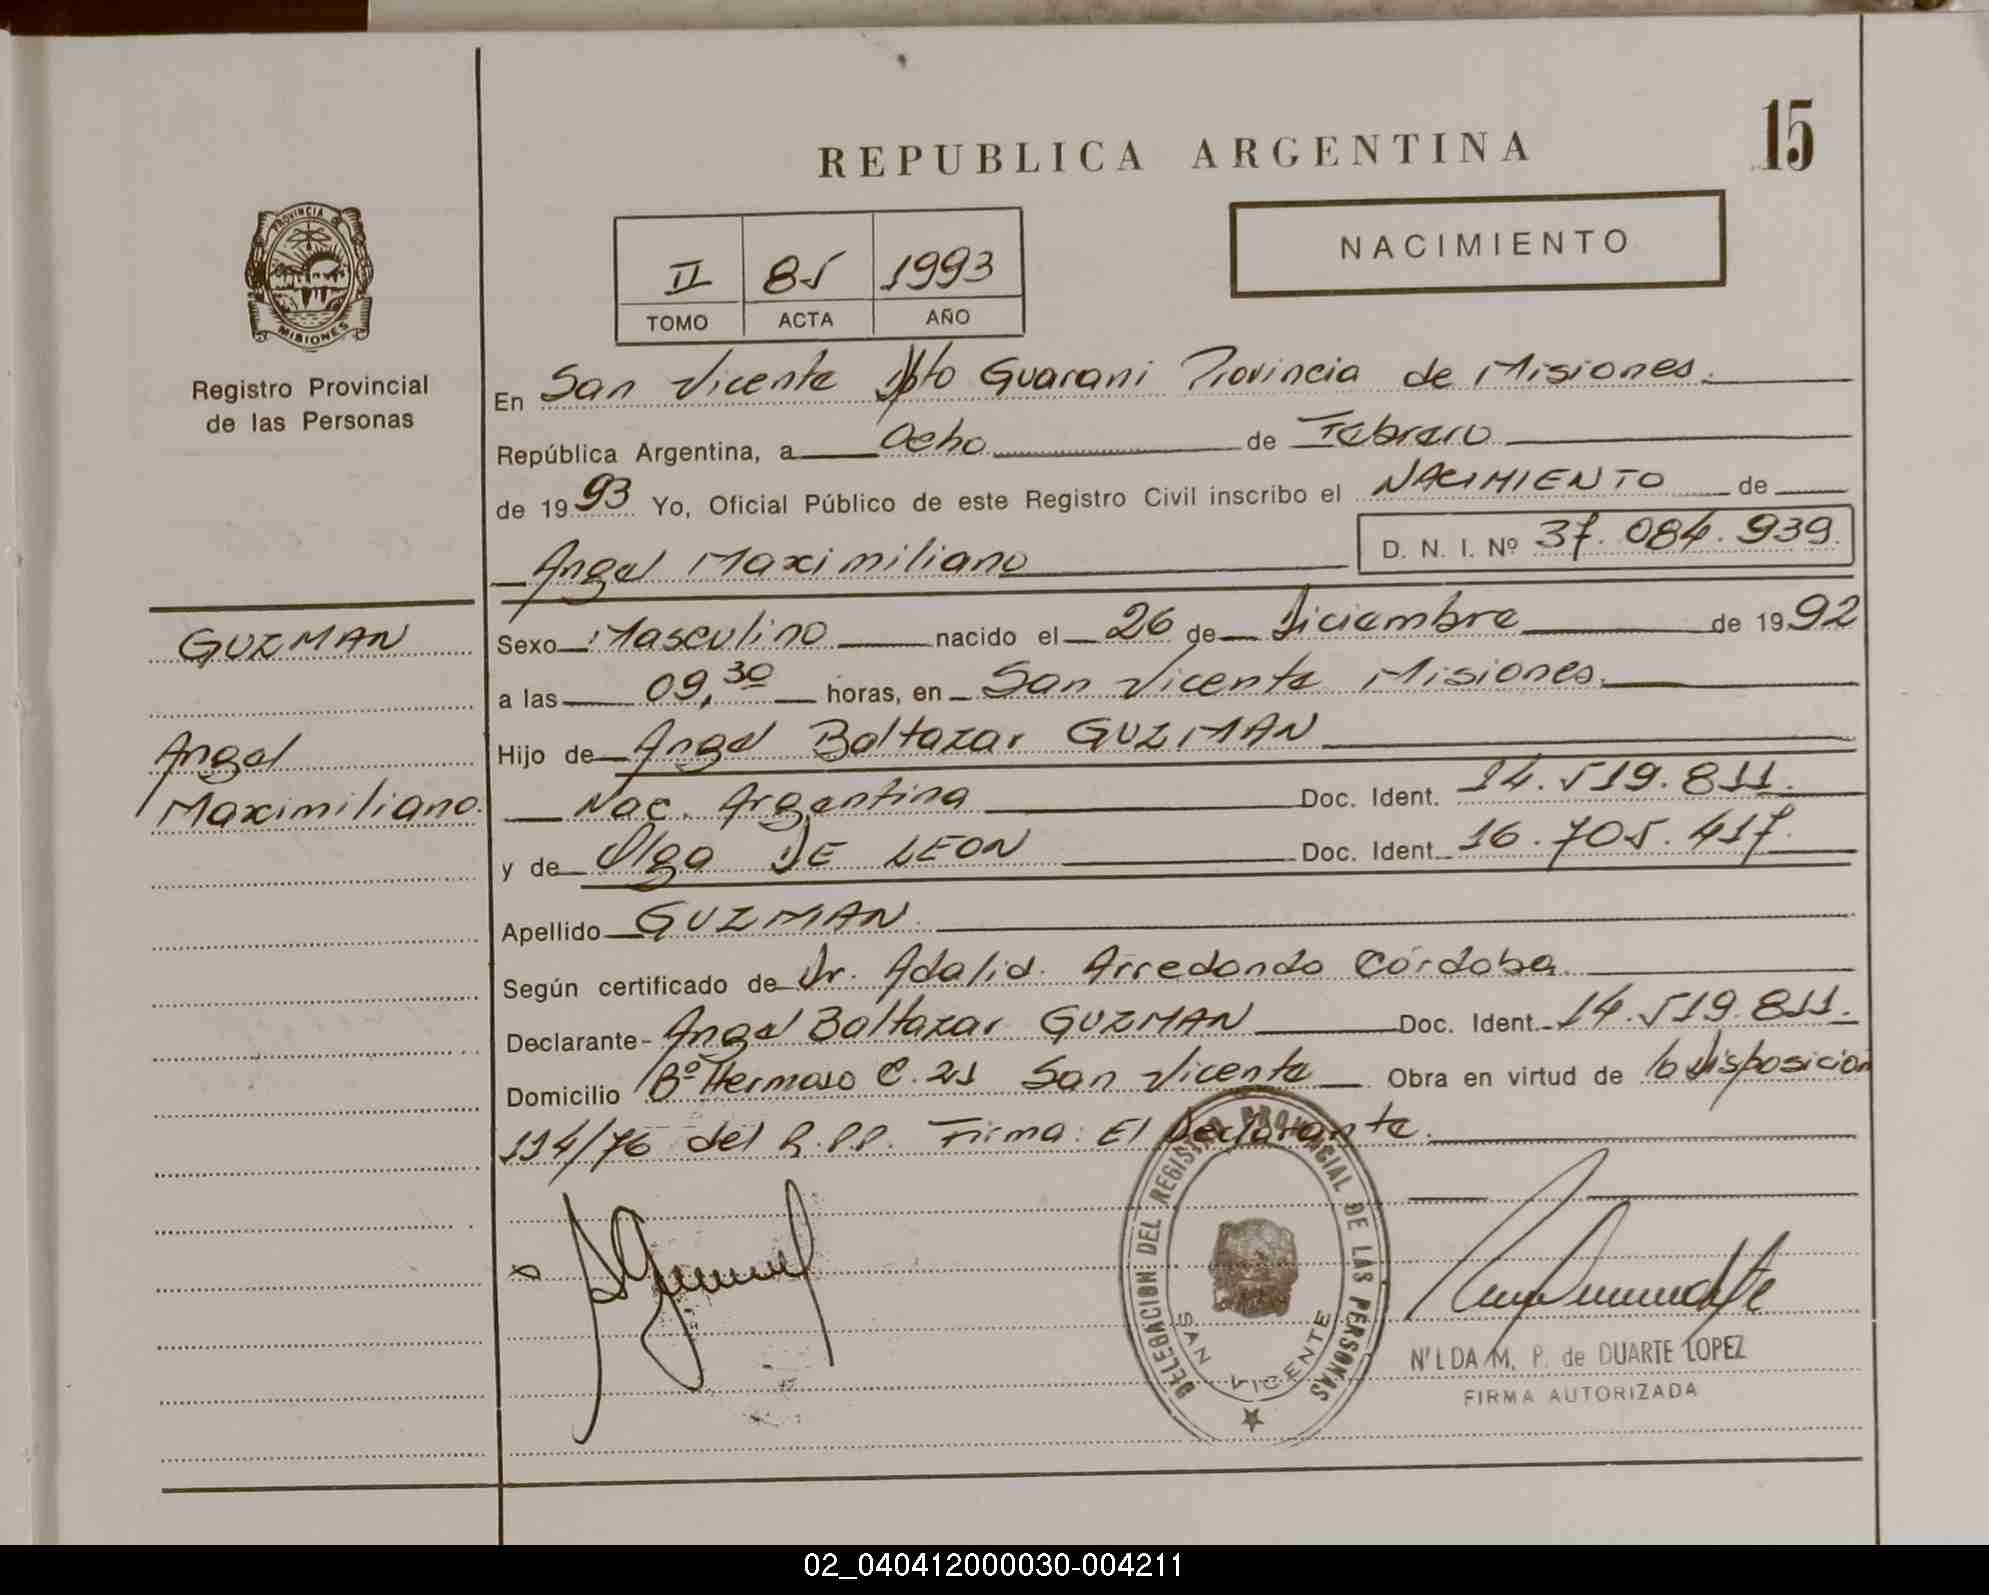 15
REPUBLICA ARGENTINA
NACIMIENTO
II 85 1993
TOMO ACTA AÑO
PROVINCIA DE MISIONES
Registro Provincial
de las Personas
En San Vicente Dpto Guarani Provincia de Misiones.
República Argentina, a Ocho de Febrero
de 1993 Yo, Oficial Público de este Registro Civil inscribo el NACIMIENTO de
Angel Maximiliano D. N. I. Nº 37.084.939.
GUZMAN
Angel
Maximiliano.
Sexo Masculino nacido el 26 de Diciembre de 1992
a las 09,30 horas, en San Vicente Misiones.
Hijo de Angel Baltazar GUZMAN
Nac. Argentina Doc. Ident. 14.519.811.
y de Olga DE LEON Doc. Ident. 16.705.417.
Apellido GUZMAN.
Según certificado de Dr. Adalid. Arredondo Córdoba.
Declarante - Angel Baltazar GUZMAN Doc. Ident. 14.519.811.
Domicilio Bº Hermoso C. 21 San Vicente Obra en virtud de la Disposición
114/76 del R.P.P. Firma: El Declarante.
DELEGACION DEL REGISTRO PROVINCIAL DE LAS PERSONAS
SAN VICENTE
N'LDA M. P. de DUARTE LOPEZ
FIRMA AUTORIZADA
02_040412000030-004211